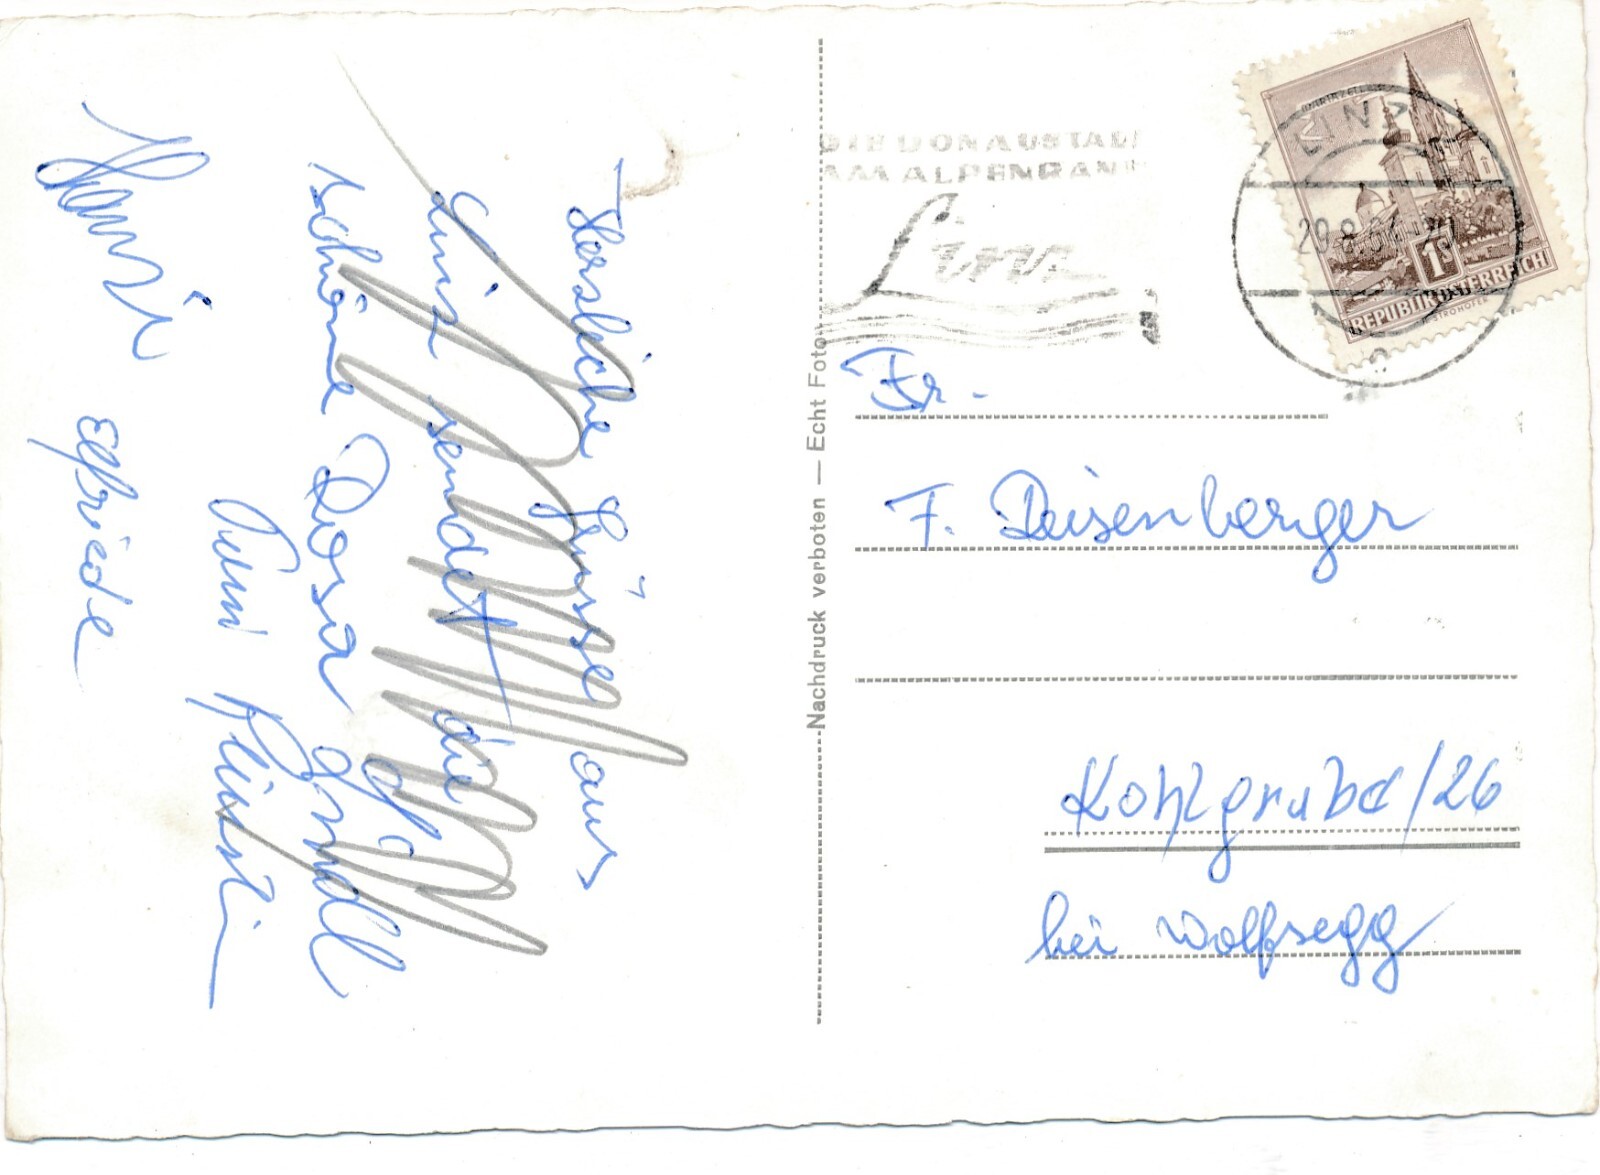 Herzliche Grüsse aus
Linz sendet die
schöne Rosa
Elfriede
DIE DONAUSTADT
AM ALPENRAND
Linz
LINZ
29.8.6
MARIAZELL
1S
REPUBLIK ÖSTERREICH
STROHOFER
Nachdruck verboten — Echt Foto
Fr.
F. Deisenberger
Kohlgrube/26
bei Wolfsegg